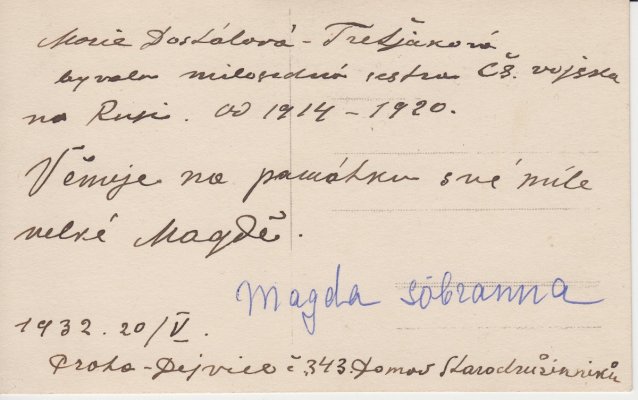 Marie Dostálová-Treťjaková
bývala milosrdná sestra Čs. vojska
na Rusi. od 1914-1920.
Věnuje na památku své míle
velké Magdě.
Magda Sobranna
1932. 20/V.
Praha-Dejvice č 343. Domov Starodružinníků